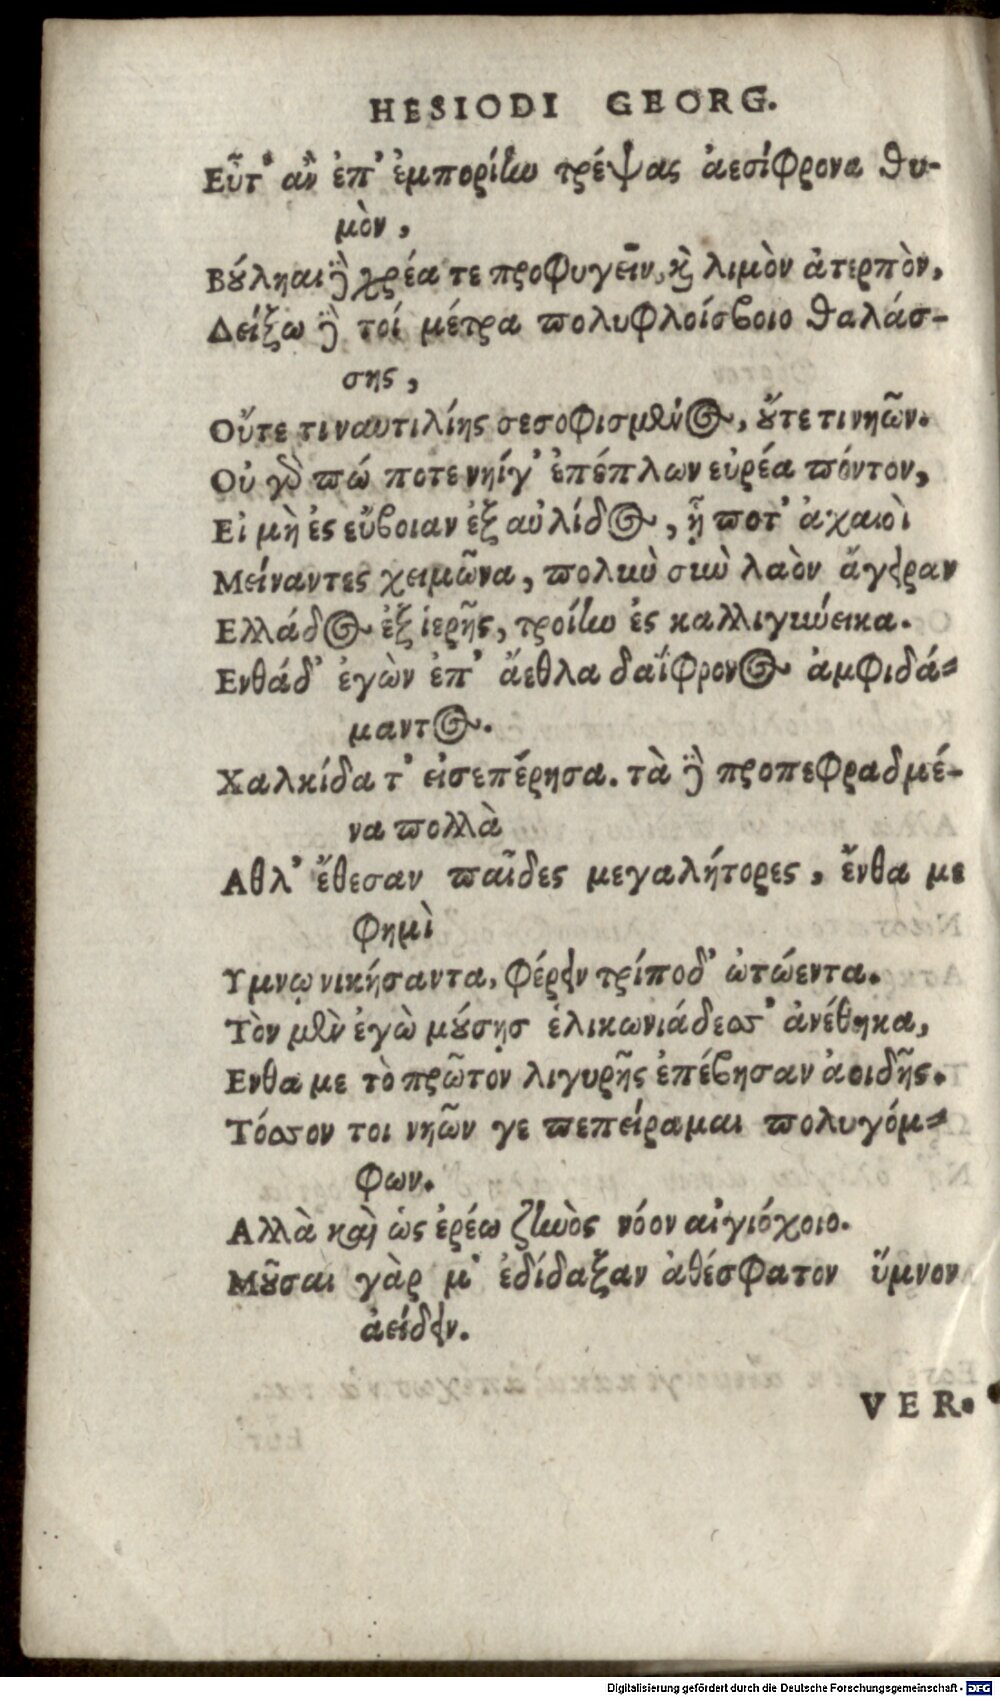 HESIODI GEORG.
Εὖτ' ἂν ἐπ' ἐμπορίην τρέψας ἀεσίφρονα θυ-
μὸν,
Βούληαι δὲ χρέα τε προφυγεῖν, καὶ λιμὸν ἀτερπὸν,
Δείξω δὲ τοί μέτρα πολυφλοίσβοιο θαλάσ-
σης,
Οὔτε τι ναυτιλίης σεσοφισμένος, οὔτε τι νηῶν.
Οὐ γὰρ πώ ποτε νηίγ' ἐπέπλων εὐρέα πόντον,
Εἰ μὴ ἐς εὔβοιαν ἐξ αὐλίδος, ᾗ ποτ' ἀχαιοὶ
Μείναντες χειμῶνα, πολὺν σὺν λαὸν ἄγειραν
Ελλάδος ἐξ ἱερῆς, τροίην ἐς καλλιγύναικα.
Ενθάδ' ἐγὼν ἐπ' ἄεθλα δαΐφρονος ἀμφιδά-
μαντος.
Χαλκίδα τ' εἰσεπέρησα. τὰ δὲ προπεφραδμέ-
να πολλὰ
Αθλ' ἔθεσαν παῖδες μεγαλήτορες, ἔνθα με
φημὶ
Υμνῳ νικήσαντα, φέρειν τρίποδ' ὠτώεντα.
Τὸν μὲν ἐγὼ μούσῃσ ἑλικωνιάδεσσ' ἀνέθηκα,
Ενθα με τὸ πρῶτον λιγυρῆς ἐπέβησαν ἀοιδῆς.
Τόσσον τοι νηῶν γε πεπείραμαι πολυγόμ-
φων.
Αλλὰ καὶ ὡς ἐρέω ζηνὸς νόον αἰγιόχοιο.
Μοῦσαι γὰρ μ' ἐδίδαξαν ἀθέσφατον ὕμνον
ἀείδειν.
VER.
Digitalisierung gefördert durch die Deutsche Forschungsgemeinschaft - DFG